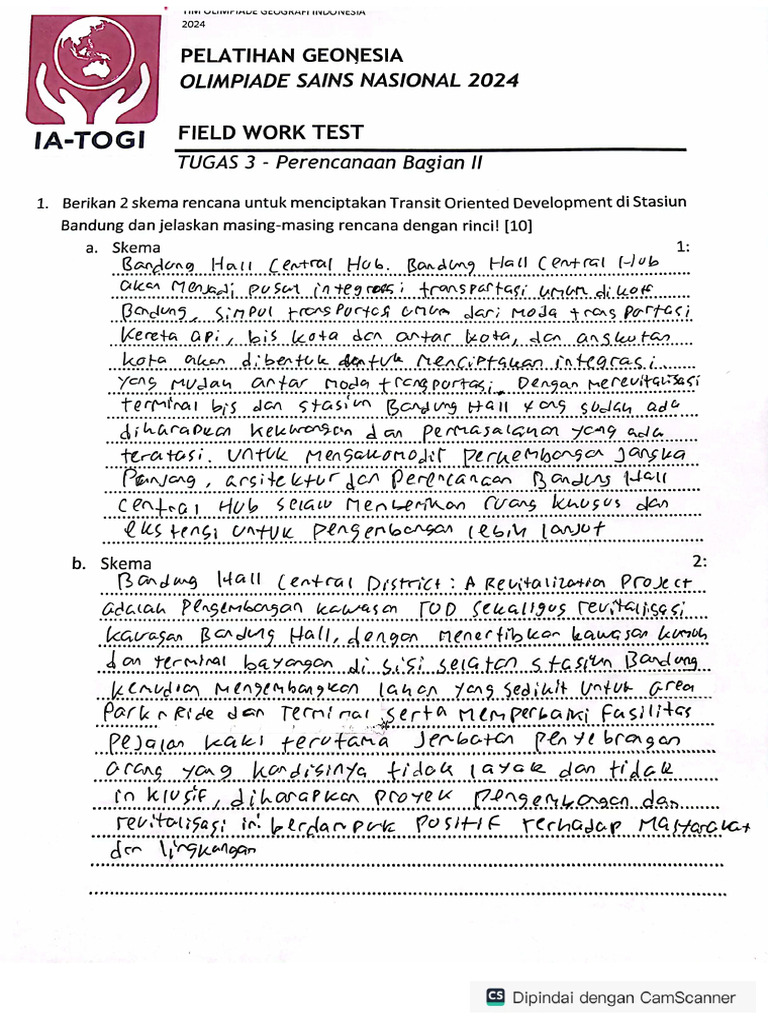 TIM OLIMPIADE GEOGRAFI INDONESIA
2024
PELATIHAN GEONESIA
OLIMPIADE SAINS NASIONAL 2024
IA-TOGI
FIELD WORK TEST
TUGAS 3 - Perencanaan Bagian II
1. Berikan 2 skema rencana untuk menciptakan Transit Oriented Development di Stasiun
Bandung dan jelaskan masing-masing rencana dengan rinci! [10]
a. Skema 1:
Bandung Hall Central Hub. Bandung Hall Central Hub
akan menjadi pusat integrasi transportasi umum di kota
Bandung, simpul transportasi umum dari moda transportasi
kereta api, bis kota dan antar kota, dan angkutan
kota akan dibentuk untuk menciptakan integrasi
yang mudah antar moda transportasi. Dengan merevitalisasi
terminal bis dan stasiun Bandung Hall yang sudah ada
diharapkan kekurangan dan permasalahan yang ada
teratasi. Untuk mengakomodir perkembangan jangka
Panjang, arsitektur dan perencanaan Bandung Hall
Central Hub selalu memberikan ruang khusus dan
ekstensi untuk pengembangan lebih lanjut
b. Skema 2:
Bandung Hall Central District : A Revitalization Project
adalah pengembangan kawasan TOD sekaligus revitalisasi
kawasan Bandung Hall, dengan menertibkan kawasan kumuh
dan terminal bayangan di sisi selatan stasiun Bandung
kemudian mengembangkan lahan yang sedikit untuk area
Park n Ride dan Terminal serta memperbaiki fasilitas
pejalan kaki terutama Jembatan penyebrangan
orang yang kondisinya tidak layak dan tidak
inklusif, diharapkan proyek pengembangan dan
revitalisasi ini berdampak positif terhadap Masyarakat
dan lingkungan
CS Dipindai dengan CamScanner